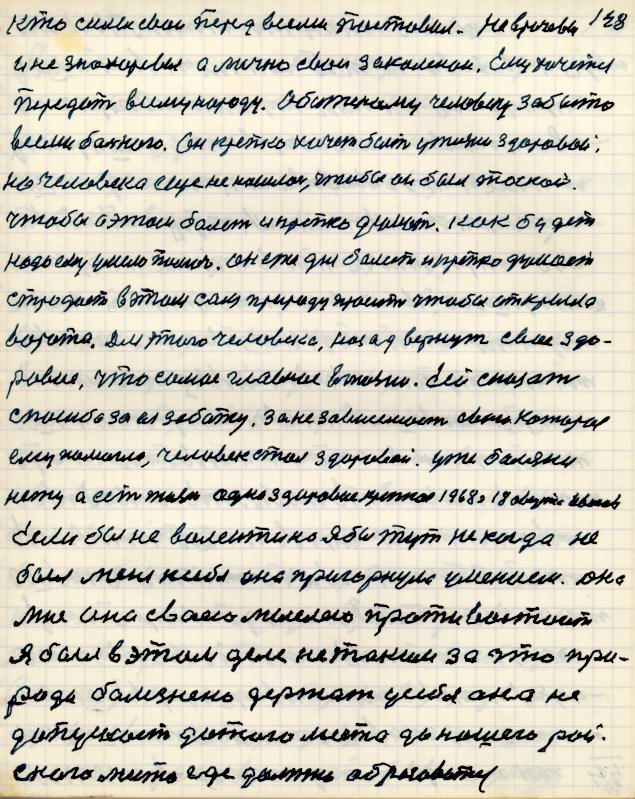 кто силы свои перед всеми поставил. Не врачевы 128
и не знахоревы а лично свои закаленаи. Ему хочется
передат всему народу. Обоженому человеку забыто
всеми больного. Он крепко хочет быт у жизни здоровой,
но человека еще не нашлос, чтобы он был такой.
чтобы о этом болет и крепко думат. Как будет
надо ему умело помоч. он сти дни болеет и крепко думает
страдает в этом сам природу просит чтобы открыла
ворота. Для этого человека, назад вернут свое здо-
ровие, что самое главное в жизни. Ей сказат
спасибо за ея заботу. за независимост свою которая
ему помогла, человек стал здоровой. уже болезни
нету а ест жизн одно здоровие крепкое 1968г 18 августа
Если бы не валентина я бы тут некогда не
был мене к себя она пригорнула умением. она
мне она своего милого противостоит
Я был в этом деле не таким за это при-
рода болезнено держат у себя она не
допускает до того места до нашего рай-
ского места где должны образоватся